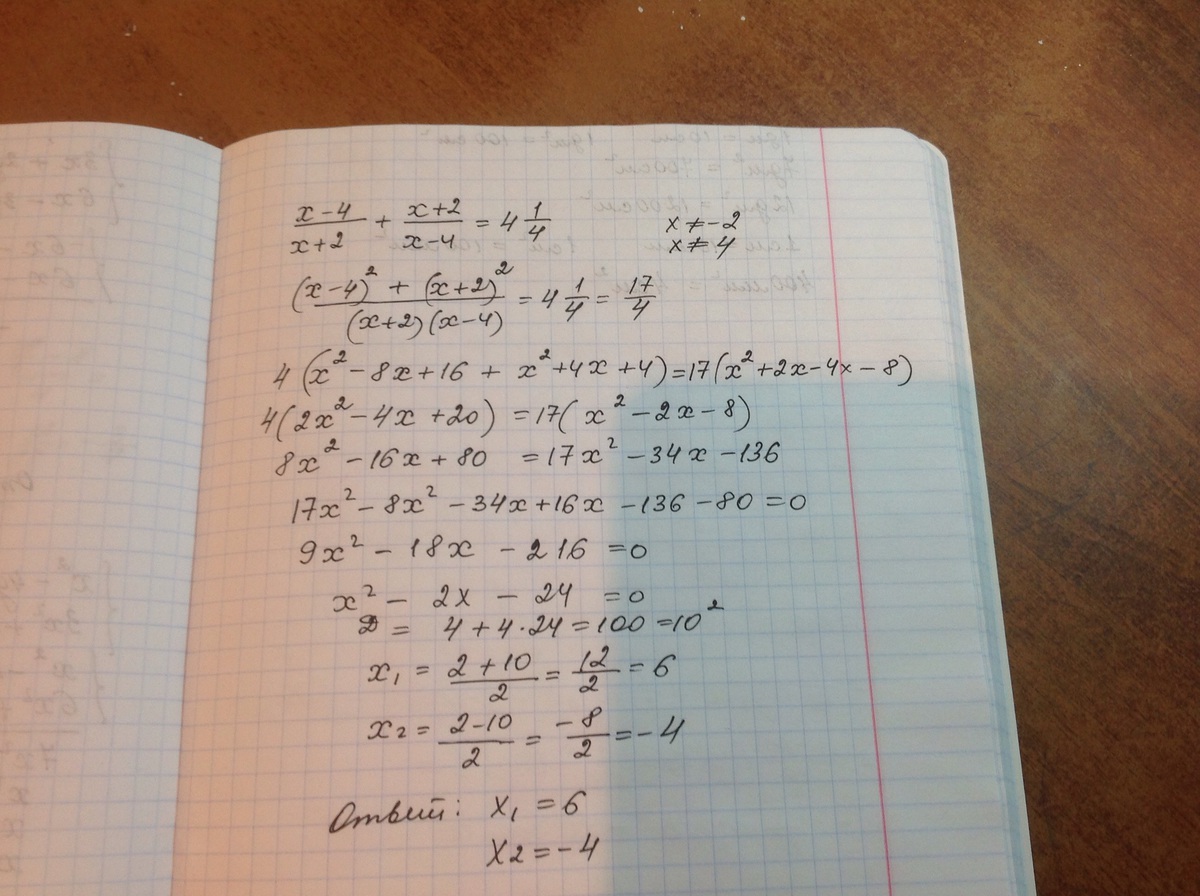 (x-4)/(x+2) + (x+2)/(x-4) = 4 1/4    x ≠ -2
x ≠ 4
((x-4)² + (x+2)²)/((x+2)(x-4)) = 4 1/4 = 17/4
4(x² - 8x + 16 + x² + 4x + 4) = 17(x² + 2x - 4x - 8)
4(2x² - 4x + 20) = 17(x² - 2x - 8)
8x² - 16x + 80 = 17x² - 34x - 136
17x² - 8x² - 34x + 16x - 136 - 80 = 0
9x² - 18x - 216 = 0
x² - 2x - 24 = 0
D = 4 + 4·24 = 100 = 10²
x₁ = (2+10)/2 = 12/2 = 6
x₂ = (2-10)/2 = -8/2 = -4
Ответ: x₁ = 6
x₂ = -4